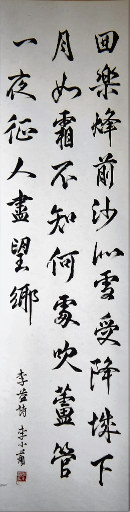 回樂烽前沙似雪受降城下
月如霜不知何處吹蘆管
一夜征人盡望鄉
李益詩 李小蕭